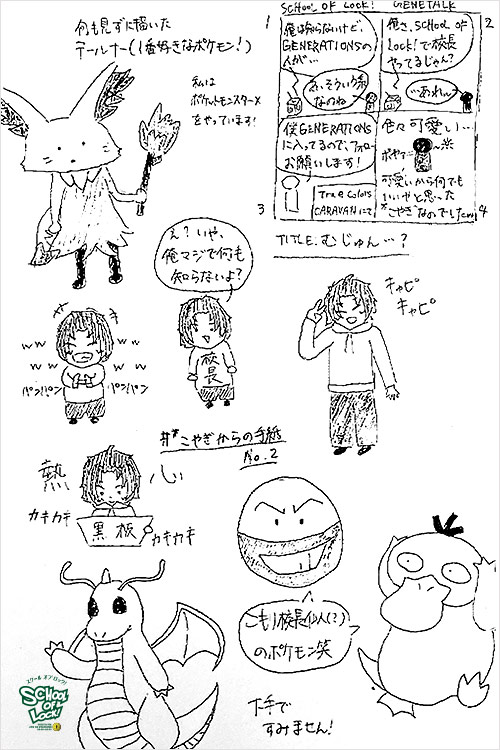 何も見ずに描いた
テールナー(1番好きなポケモン!)
私は
ポケットモンスターX
をやっています!
SCHOOL OF LOCK! GENETALK
1
俺は知らないけど、
GENERATIONSの
人が…
2
俺さ、SCHOOL OF
LOCK!で校長
やってるじゃん?
…あれ…
3
僕GENERATIONS
に入ってるので、フォロー
お願いします!
True Colors
CARAVANにて
4
色々可愛い…
可愛いから何でも
いいやと思った
"こやぎ"なのでした
TITLE.むじゅん…?
え?いや、
俺マジで何も
知らないよ?
校長
キャピ
キャピ
w w
w w
w w
w w
パンパン
パンパン
#"こやぎからの手紙
No.2
熱
心
カキカキ
黒板
カキカキ
こもり校長似(?)
のポケモン笑
下手で
すみません!
スクール オブ ロック!
SCHOOL
OF
LOCK!